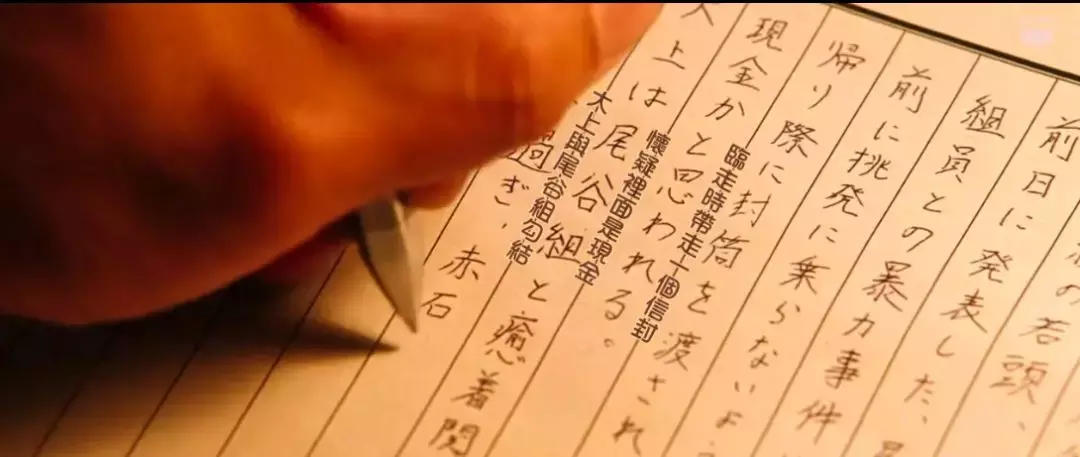 の若頭、
前日に発表した、
組員との暴力事件
前に挑発に乗らないよ
帰り際に封筒を渡され
現金かと思われる。
大上は尾谷組と癒着関
過ぎ、赤石
臨走時帶走一個信封
懷疑裡面是現金
大上與尾谷組勾結